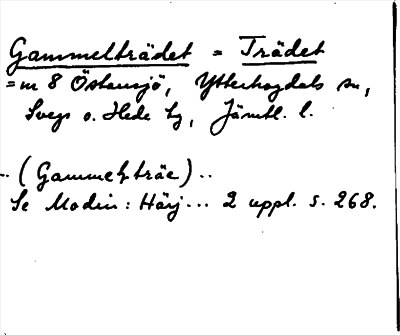 Gammelträdet = Trädet
= m 8 Östansjö, Ytterhogdals sn,
Svegs o. Hede tg, Jämtl. l.
.. (Gammelträe) ..
Se Modin: Härj... 2 uppl. s. 268.